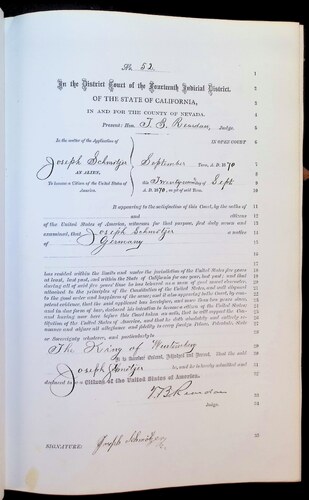 No 52.
In the District Court of the Fourteenth Judicial District,
OF THE STATE OF CALIFORNIA,
IN AND FOR THE COUNTY OF NEVADA.
Present: Hon. Judge.
In the matter of the Application of
IN OPEN COURT
Joseph
September Term, A. D. 1870
AN ALIEN,
To become a Citizen of the United States of America.
on Twenty of Sept
A. D. 1870, as of said Term.
It appearing to the satisfaction of this Court, by the oaths of
and citizens
of the United States of America, witnesses for that purpose, first duly sworn and
examined, that Joseph a native
of Germany
has resided within the limits and under the jurisdiction of the United States five years
at least, last past, and within the State of California for one year, last past; and that
during all of said five years' time he has behaved as a man of good moral character,
attached to the principles of the Constitution of the United States, and well disposed
to the good order and happiness of the same; and it also appearing to the Court, by
petent evidence, that the said applicant has heretofore, and more than two years since,
and in due form of law, declared his intention to become a citizen of the United States
and having now here before this Court taken an oath, that he will support the Con-
stitution of the United States of America, and that he doth absolutely and entirely re-
nounce and abjure all allegiance and fidelity to every foreign Prince, Potentate, State
or Sovereignty whatever, and particularly to
The King of
It is therefore Ordered, Adjudged and Decreed, That the said
Joseph is, and he hereby admitted and
declared to be a Citizen of the United States of America.
Judge.
SIGNATURE: Joseph